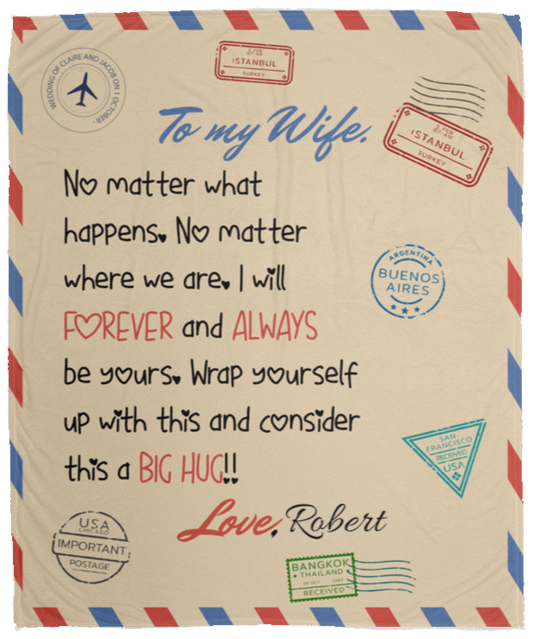 WEDDING OF CLAIRE AND JACOB ON 1 OCTOBER
ISTANBUL
TURKEY
To my Wife.
ISTANBUL
TURKEY
No matter what
happens. No matter
where we are. I will
FOREVER and ALWAYS
be yours. Wrap yourself
up with this and consider
this a BIG HUG!!
Love, Robert
ARGENTINA
BUENOS
AIRES
SAN
FRANCISCO
RECEIVED
USA
USA
CHICAGO
IMPORTANT
POSTAGE
BANGKOK
THAILAND
RECEIVED